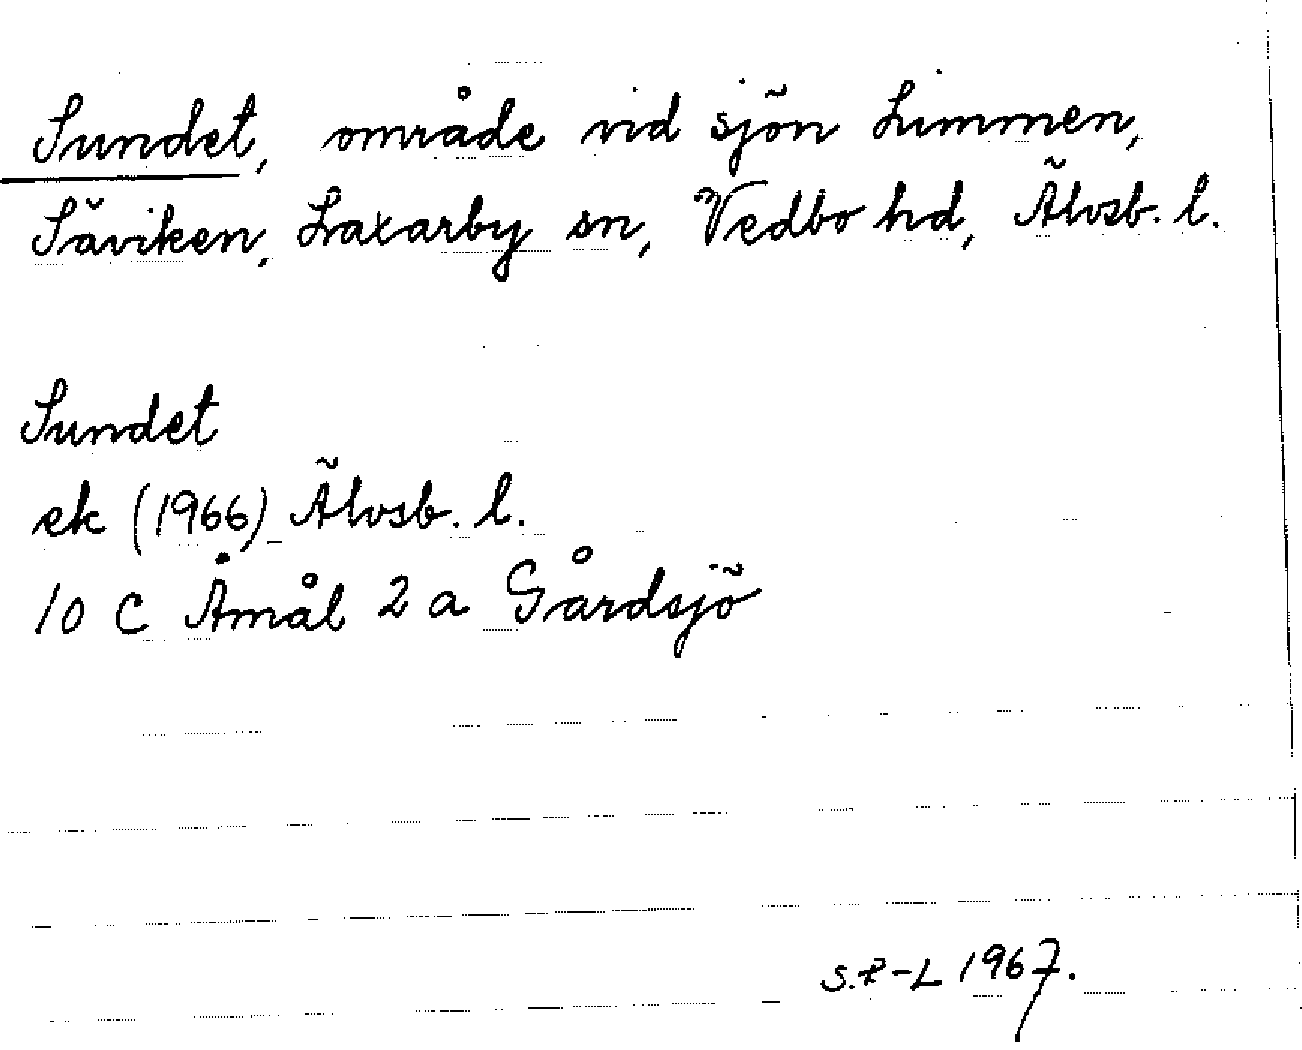 Sundet, område vid sjön Limmen,
Säviken, Laxarby sn, Vedbo hd, Älvsb. l.
Sundet
ek (1966) Älvsb. l.
10 C Åmål 2 a Gårdsjö
1967.